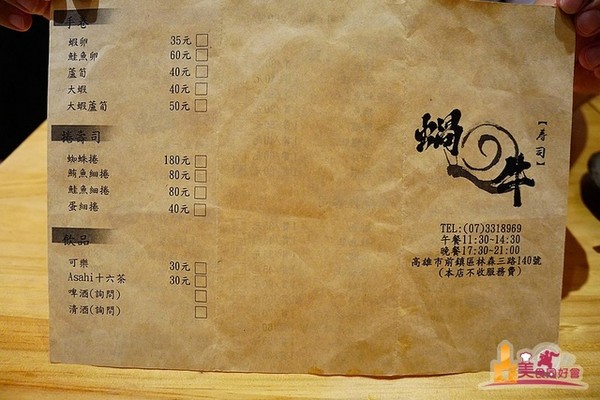 手卷
蝦卵 35元
鮭魚卵 60元
蘆筍 40元
大蝦 40元
大蝦蘆筍 50元
捲壽司
蜘蛛捲 180元
鮪魚細捲 80元
鮭魚細捲 80元
蛋細捲 40元
飲品
可樂 30元
Asahi十六茶 30元
啤酒(詢問)
清酒(詢問)
蝸牛
【壽司】
TEL:(07)3318969
午餐11:30-14:30
晚餐17:30-21:00
高雄市前鎮區林森三路140號
(本店不收服務費)
美食同好會